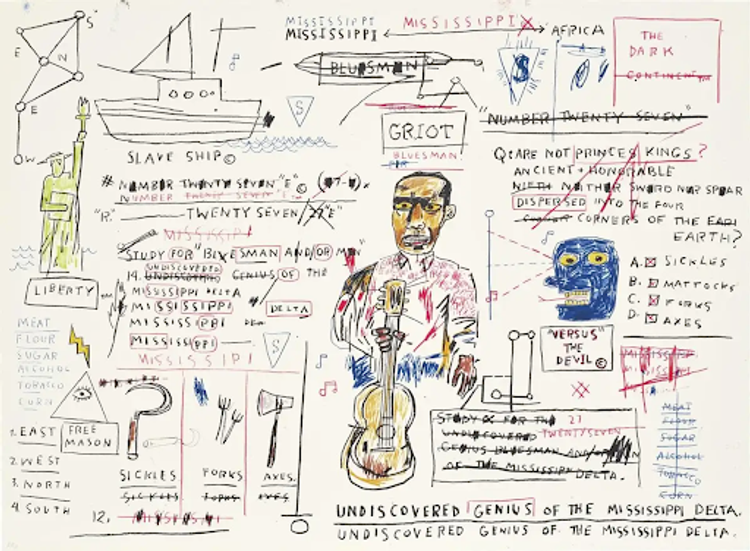 MISSISSIPPI
MISSISSIPPI
MISSISSIPPI
AFRICA
THE
DARK
CONTINENT
S
E
N
E
W
BLUESMAN
S
S
GRIOT
BLUESMAN!
"NUMBER TWENTY SEVEN"
SLAVE SHIP©
# NUMBER TWENTY SEVEN "E"©
NUMBER TWENTY SEVEN "E"
"R."
TWENTY SEVEN
STUDY FOR "BLUESMAN AND/OR
UNDISCOVERED
14. GENIUS OF THE
MISSISSIPPI DELTA
MISSISSIPPI
DELTA
MISSISS
MISSISS
S
LIBERTY
Q: ARE NOT PRINCES KINGS?
ANCIENT + HONORABLE
NEITHER SWORD NOR SPEAR
DISPERSED INTO THE FOUR
CORNERS OF THE
EARTH?
A. SICKLES
B. MATTOCKS
C. FORKS
D. AXES
"VERSUS"
THE
DEVIL©
MEAT
FLOUR
SUGAR
ALCOHOL
TOBACCO
CORN
1. EAST
FREE
MASON
2. WEST
3. NORTH
4. SOUTH
SICKLES
SICKLES
FORKS
FORKS
AXES.
AXES
12.
STUDY FOR THE 27
UNDISCOVERED TWENTYSEVEN
GENIUS BLUESMAN AND/OR
OF THE MISSISSIPPI DELTA.
MEAT
FLOUR
SUGAR
ALCOHOL
TOBACCO
CORN
UNDISCOVERED GENIUS OF THE MISSISSIPPI DELTA.
UNDISCOVERED GENIUS OF THE MISSISSIPPI DELTA.